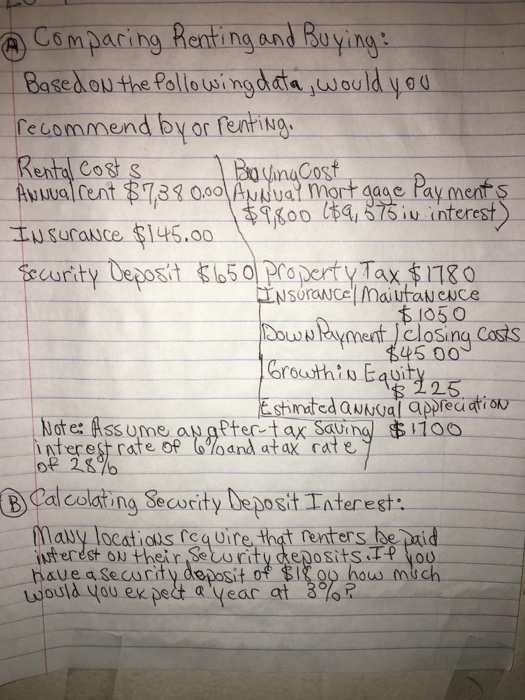 Ⓐ Comparing Renting and Buying:
Based on the following data, would you
recommend by or renting.
Rental Costs
Buying Cost
Annual rent $7,380.00
Annual Mortgage Payments
$9,800 ($9,575 in interest)
Insurance $145.00
Security Deposit $650
Property Tax, $1780
Insurance/Maintanence
$1050
Down Payment/closing costs
$4500
Growth in Equity
$225
Estimated annual appreciation
$1700
Note: Assume an after-tax Saving
interest rate of 6% and a tax rate
of 28%
Ⓑ Calculating Security Deposit Interest:
Many locations require that renters be paid
interest on their Security deposits. If you
have a security deposit of $1800 how much
would you expect a year at 3%?